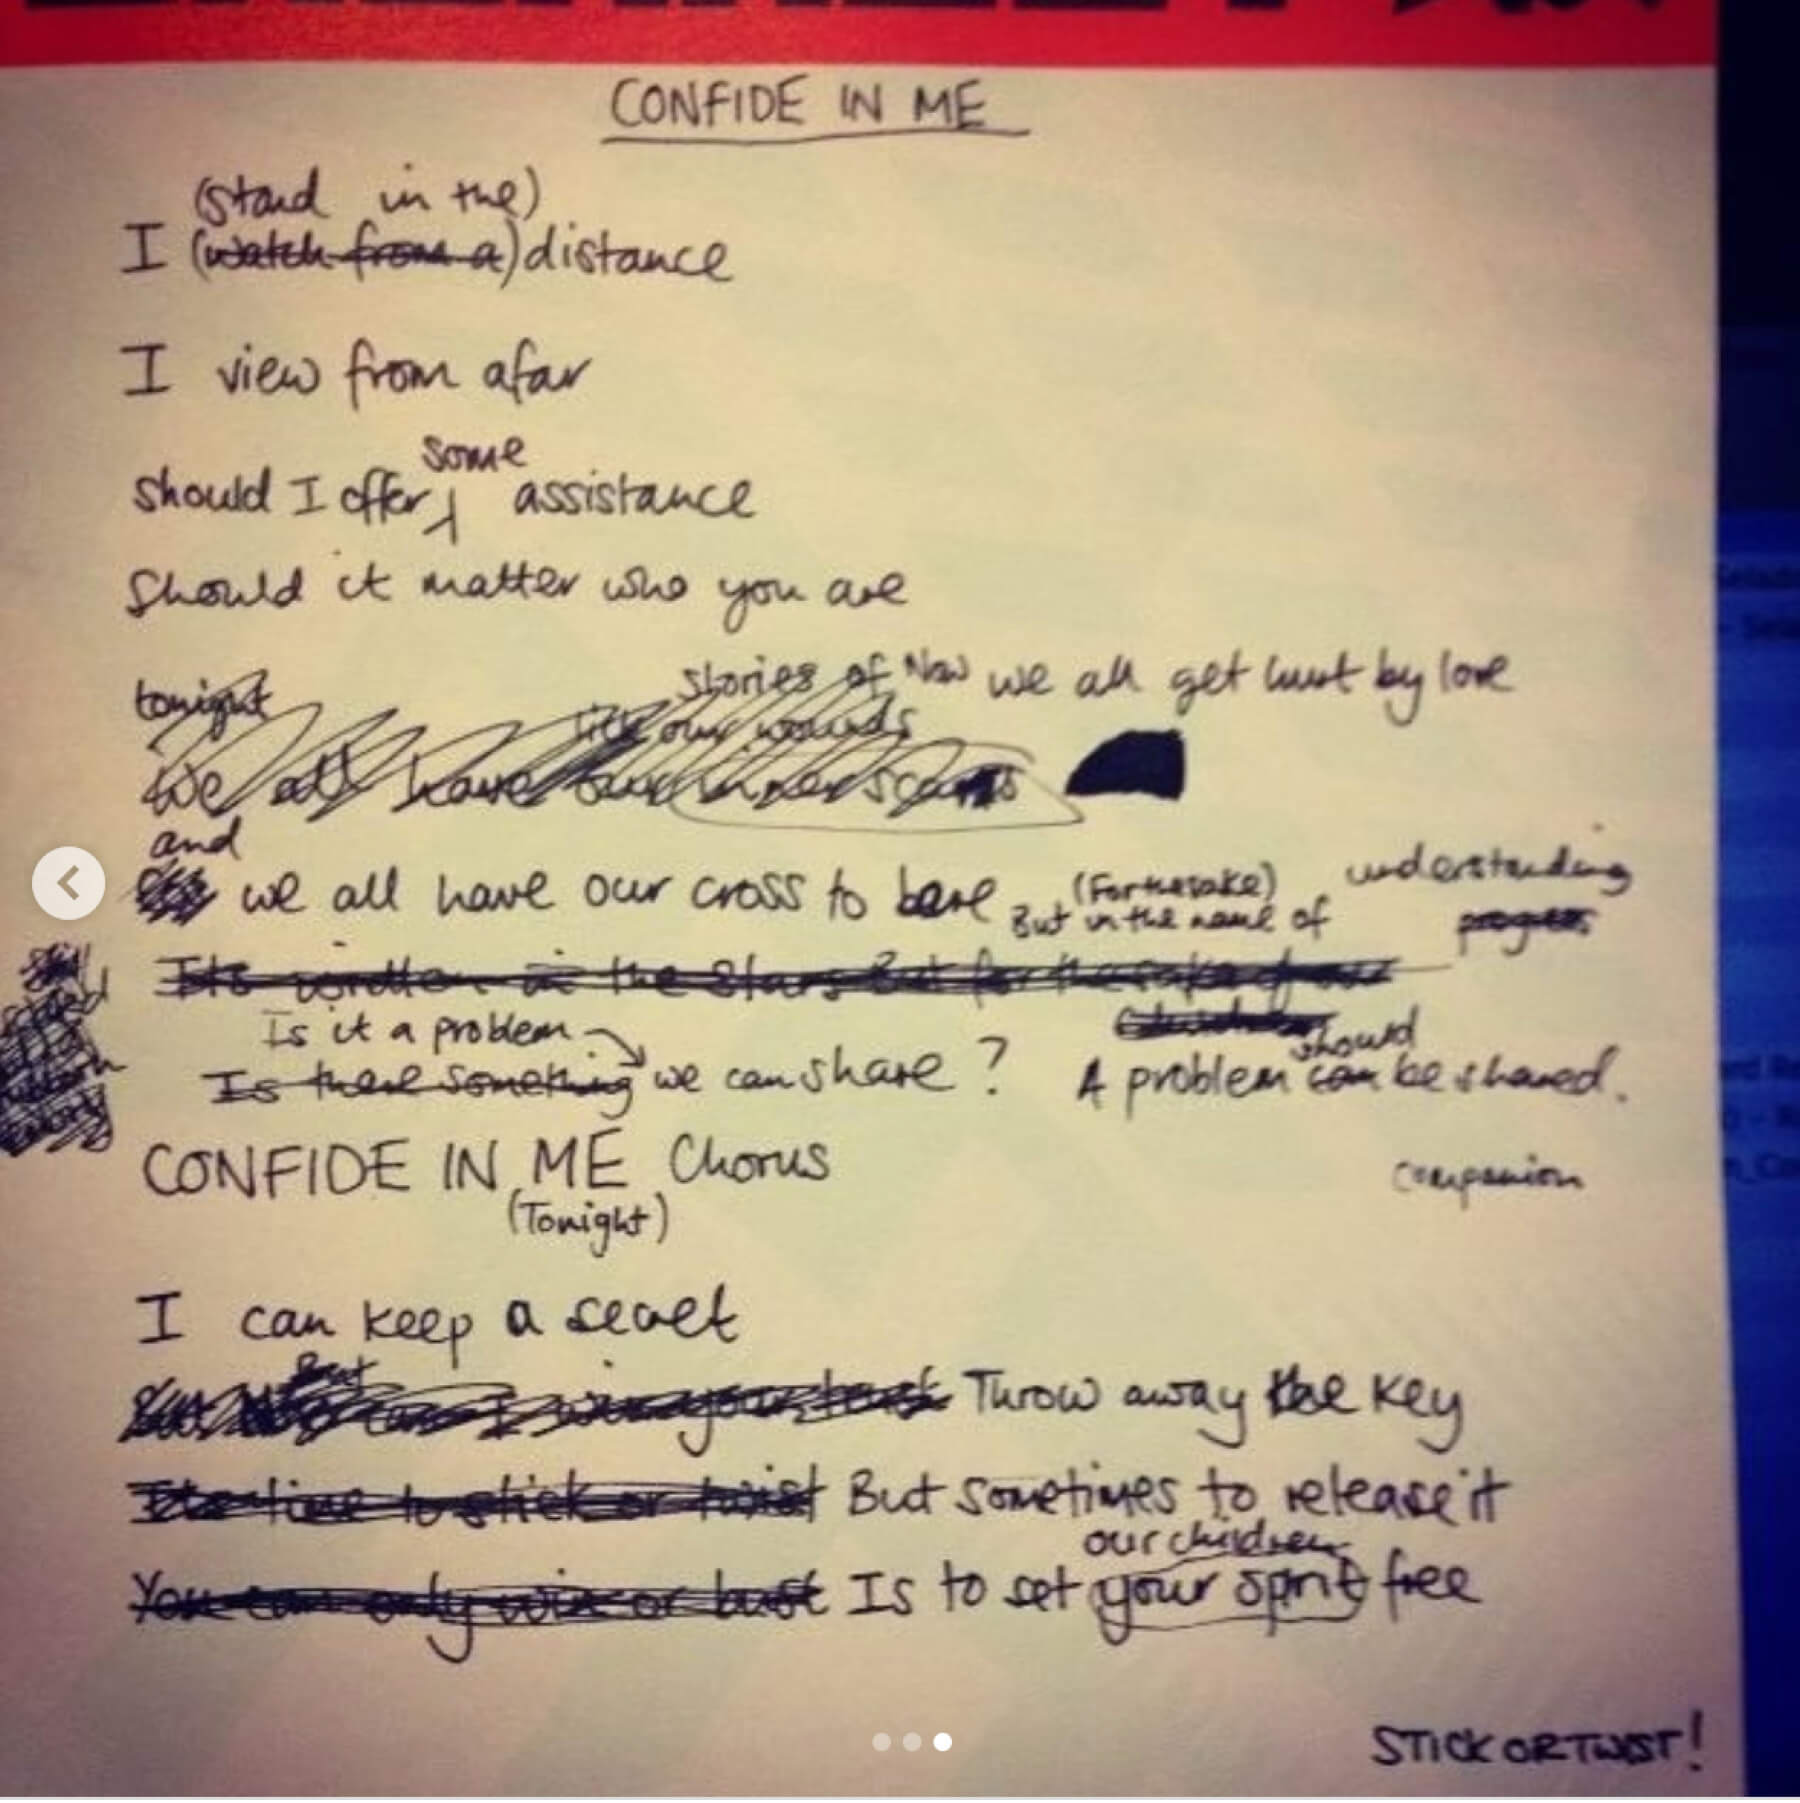 CONFIDE IN ME
(stand in the)
I (watch from a) distance
I view from afar
some
should I offer assistance
Should it matter who you are
stories of Now we all get hurt by love
tonight
lick our wounds
We all have our inner scars
and
we all have our cross to bare (For the sake) understanding
But in the name of progress
Its written in the stars But for the sake of our
Is it a problem should
Is there something we can share ? A problem can be shared.
CONFIDE IN ME Chorus companion
(Tonight)
I can keep a secret
But
can I win your trust Throw away the key
Its time to stick or twist But sometimes to release it
our children
You can only win or bust Is to set your spirit free
STICK OR TWIST!